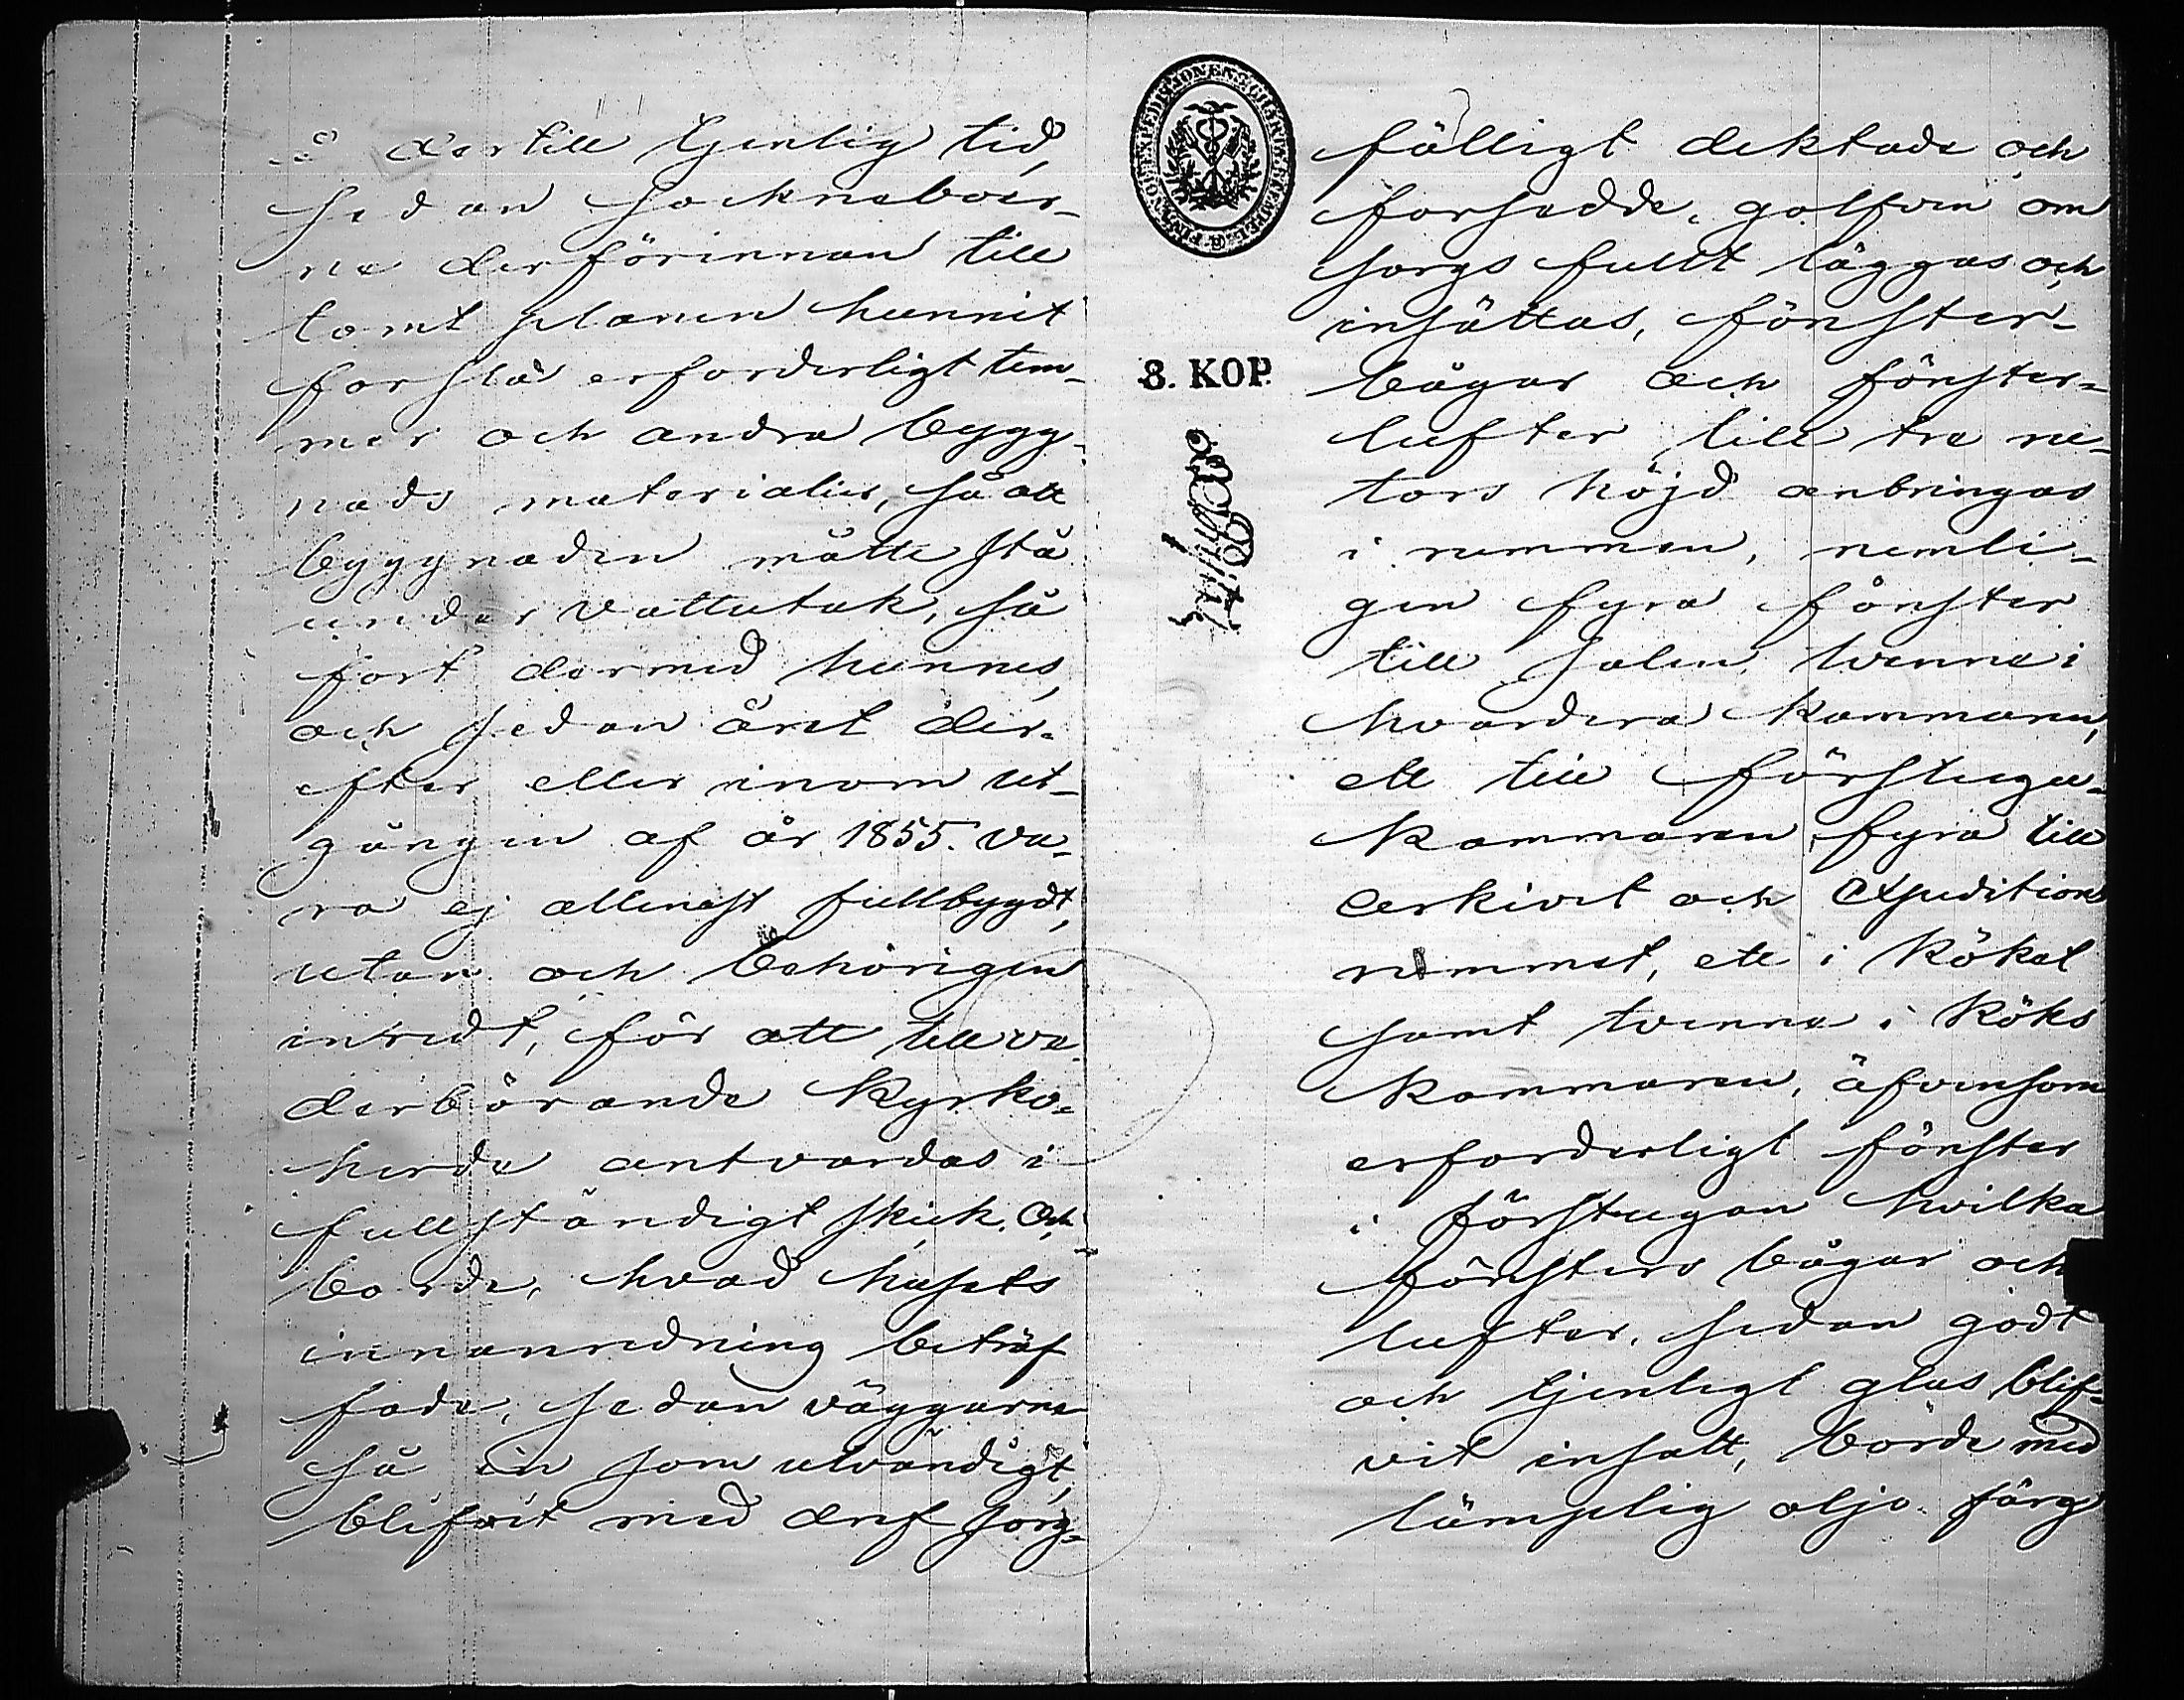 å dertill tjenlig tid,
sedan sockneboer-
ne derförinnan till
tomt planen hunnit
forsla erforderligt tim-
mer och andra bygg-
nads materialier, så att
byggnaden måtte stå
under vattutak, så
fort dermed hunnes,
och sedan året der-
efter eller inom ut-
gången af år 1855. va-
ra ej allenast fullbygdt,
utan och behörigen
inredt, för att till ve-
derbörande Kyrko-
herde antvardas i
fullständigt skick. Och
borde, hvad husets
innanredning beträf
fade, sedan väggarne
så in som utvändigt,
blifvit med dref sorg-
FINANCE EXPEDITIONENS CHARTÆ STEMPEL
3. KOP.
fälligt diktade och
forsedde, golfven om
sorgs fullt läggas och
insättas, fönster-
bågar och fönster-
lufter till tre ru-
tors höjd anbringas
i rummen, nemli-
gen fyra fönster
till salen, tvenne i
hvardera kammaren,
ett till förstugu-
kammaren, fyra till
arkivet och expeditions
rummet, ett i köket
samt tvenne i köks
kammaren, äfvensom
erforderligt fönster
i förstugan hvilka
fönsters bågar och
lufter, sedan godt
och tjenligt glas blif-
vit insatt, borde med
lämplig oljo färg